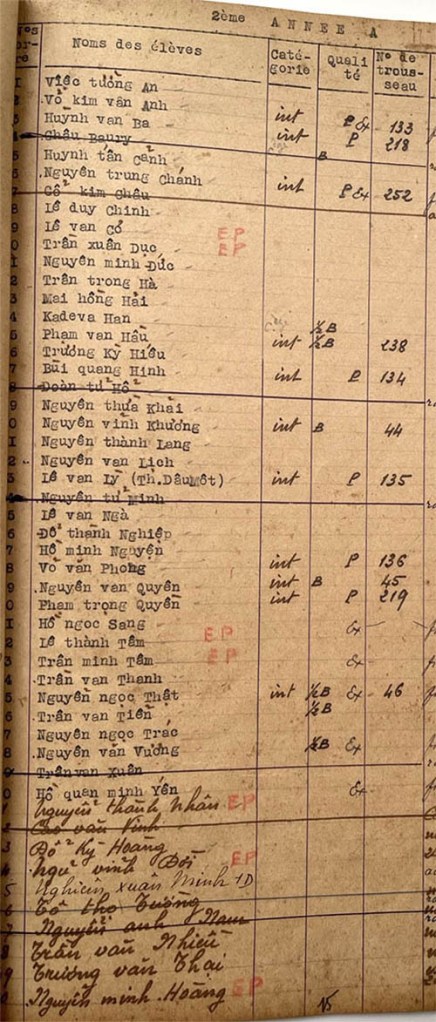 2ème ANNEE A
Nos or- re Noms des élèves Caté- gorie Quali té No de trous- seau
1 Việc tưởng An
2 Võ kim vân Anh
3 Huynh van Ba int P Ex 133
4 Châu Baury int P 218
5 Huynh tấn Cảnh B
6 Nguyên trung Chánh
7 Cổ kim Châu int P Ex 252
8 Lê duy Chinh
9 Lê van Cỏ EP
0 Trần xuân Dục EP
1 Nguyên minh Đức
2 Trân trong Hà
3 Mai hồng Hải
4 Kadeva Han
5 Pham van Hầu ½ B
6 Trương Kỳ Hiếu int ½ B 238
7 Bùi quang Hinh int P 134
8 Đoàn tử Hổ
9 Nguyên thừa Khải
0 Nguyên vinh Khương int B 44
1 Nguyên thành Lang
2 Nguyên van Lịch
3 Lê van Lý (Th.DâuMôt) int P 135
4 Nguyên tử Minh
5 Lê van Ngà
6 Đỗ thành Nghiệp
7 Hồ minh Nguyện
8 Võ văn Phong int P 136
9 Nguyên van Quyền int B 45
0 Pham trọng Quyền int P 219
1 Hồ ngọc Sang Ex
2 Lê thành Tâm EP
3 Trần minh Tâm EP Ex
4 Trần van Thanh
5 Nguyên ngọc Thật int ½B Ex 46
6 Trân van Tiền ½B
7 Nguyên ngọc Trác
8 Nguyên văn Vương ½B Ex
9 Trân van Xuân
0 Hồ quan minh Yến Ex
1 Nguyễn thành Nhân EP
2 văn Vinh
3 Đỗ Kỳ Hoàng
4 Ngũ vinh Đời EP
5 Nghiêm xuân Minh 1D
6 Tô thọ Tường
7 Nguyễn anh Nam
8 Trần văn Nhiều
9 Trương văn Thại
Nguyễn minh Hoàng EP